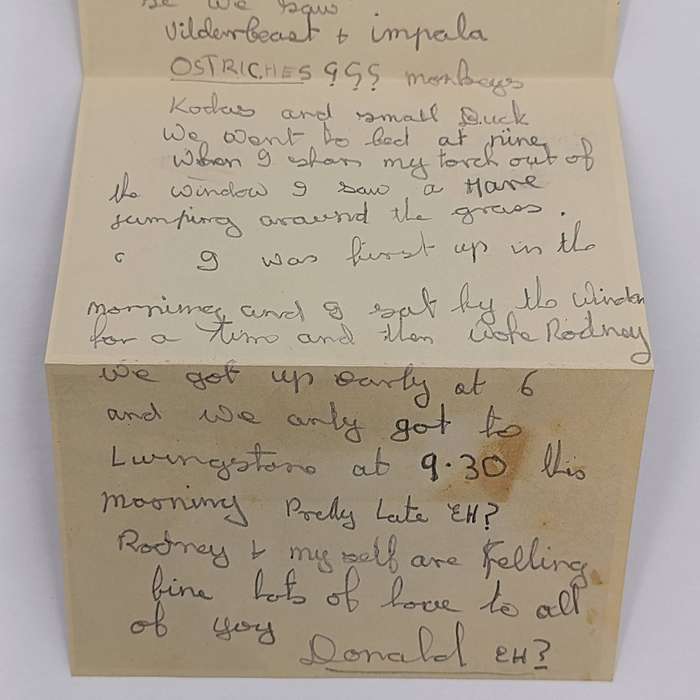 se we saw
Vilderbeast + impala
OSTRICHES ??? monkeys
Kodas and small Duck
We went to bed at nine,
When I shon my torch out of
the window I saw a Hare
jumping around the grass.
I was first up in the
morning and I sat by the window
for a time and then woke Rodney
We got up early at 6
and we only got to
Livingstone at 9.30 this
morning Pretty Late EH?
Rodney + my self are Felling
fine lots of love to all
of you
Donald EH?